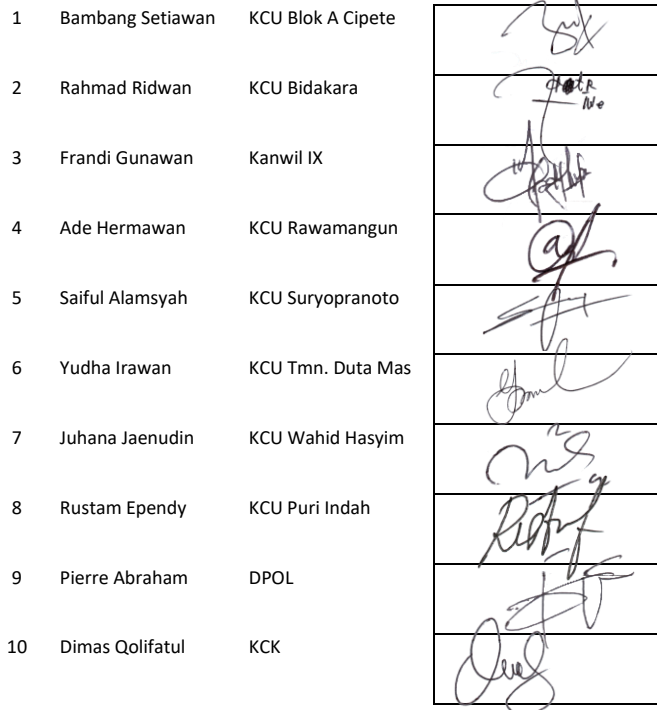 1 Bambang Setiawan KCU Blok A Cipete
2 Rahmad Ridwan KCU Bidakara
3 Frandi Gunawan Kanwil IX
4 Ade Hermawan KCU Rawamangun
5 Saiful Alamsyah KCU Suryopranoto
6 Yudha Irawan KCU Tmn. Duta Mas
7 Juhana Jaenudin KCU Wahid Hasyim
8 Rustam Ependy KCU Puri Indah
9 Pierre Abraham DPOL
10 Dimas Qolifatul KCK